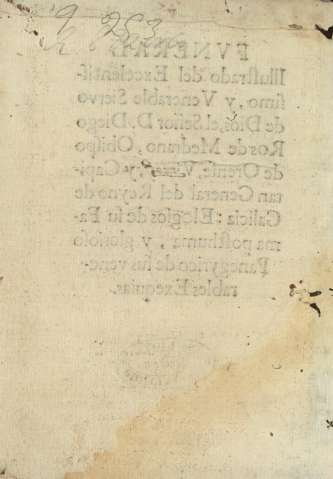 FVNERAL
Illustrado del Excelentis-
simo, y Venerable Siervo
de Dios, el Señor D. Diego
Ros de Medrano, Obispo
de Orense, y Capi-
tan General del Reyno de
Galicia: Elogios de su Fa-
ma posthuma, y glorioso
Panegyrico de sus vene-
rables Exequias.